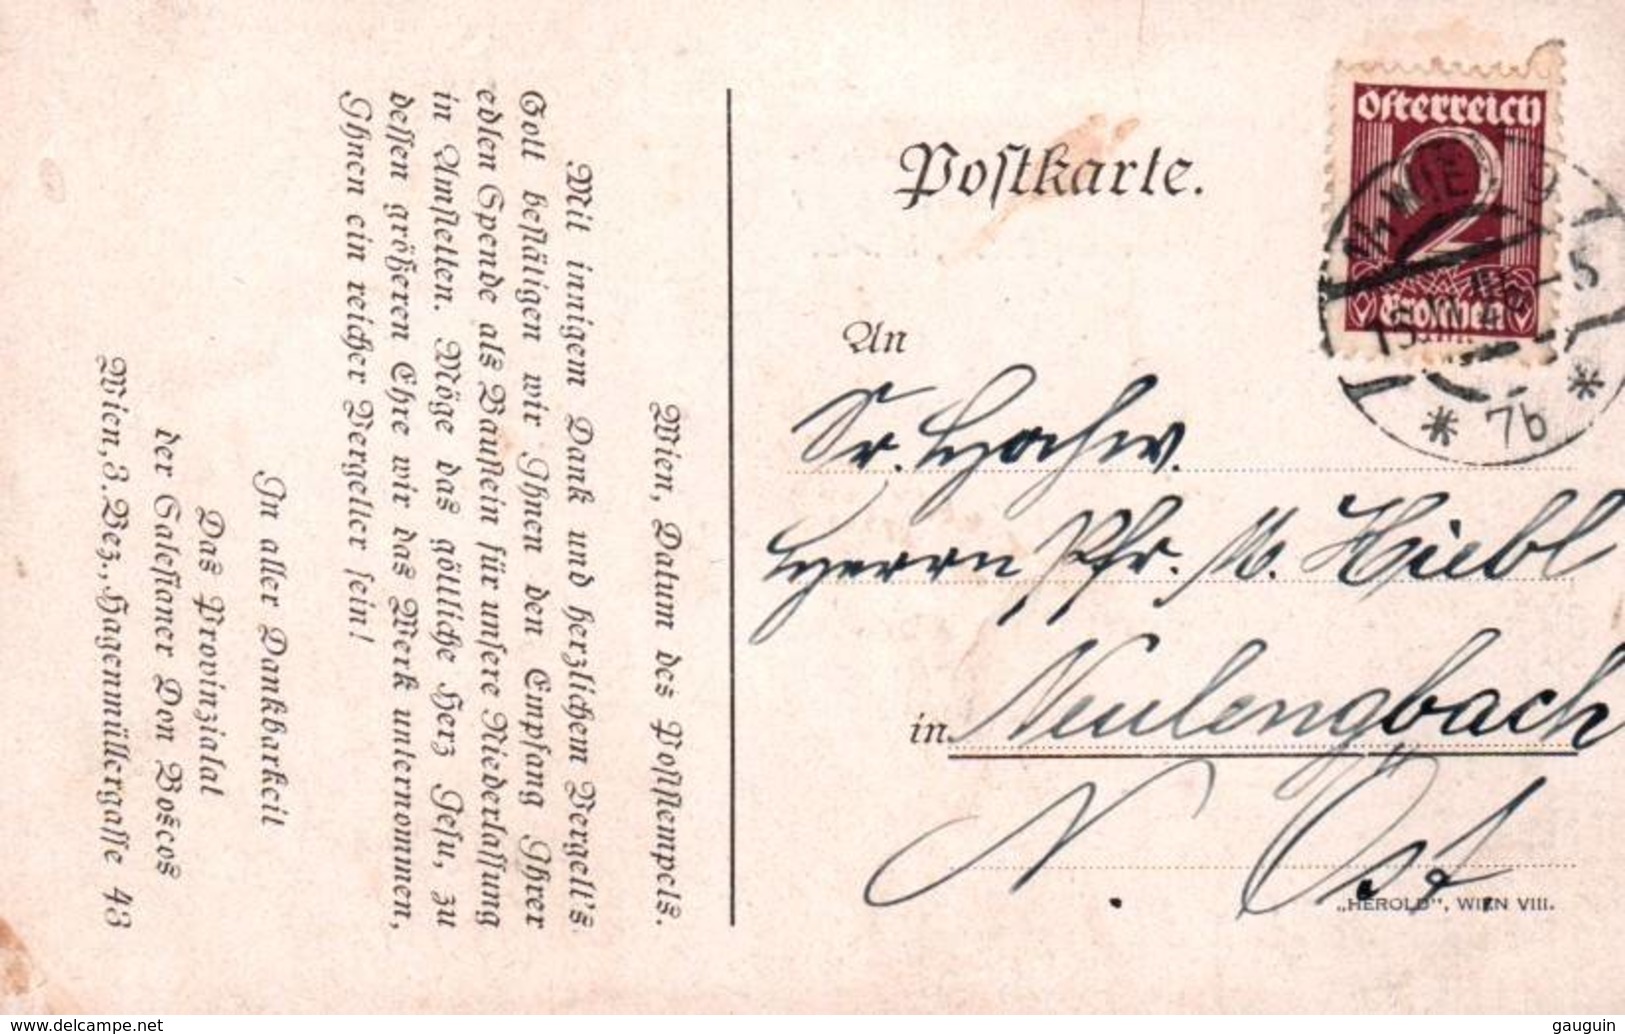 Wien, Datum des Poststempels.
Mit innigem Dank und herzlichem Vergelt's
Gott bestätigen wir Ihnen den Empfang Ihrer
edlen Spende als Baustein für unsere Niederlassung
in Amstetten. Möge das göttliche Herz Jesu, zu
dessen größeren Ehre wir das Werk unternommen,
Ihnen ein reicher Vergelter sein!
In aller Dankbarkeit
Das Provinzialat
der Salesianer Don Boscos
Wien, 3. Bez., Hagenmüllergasse 43
Postkarte.
Österreich
2
Groschen
WIEN
* 7b *
An
Sr. Hochw.
Herrn Pfr. M. Hiebl
in Neulengbach
N. Öst
„HEROLD", WIEN VIII.
https://www.delcampe.net
gauguin